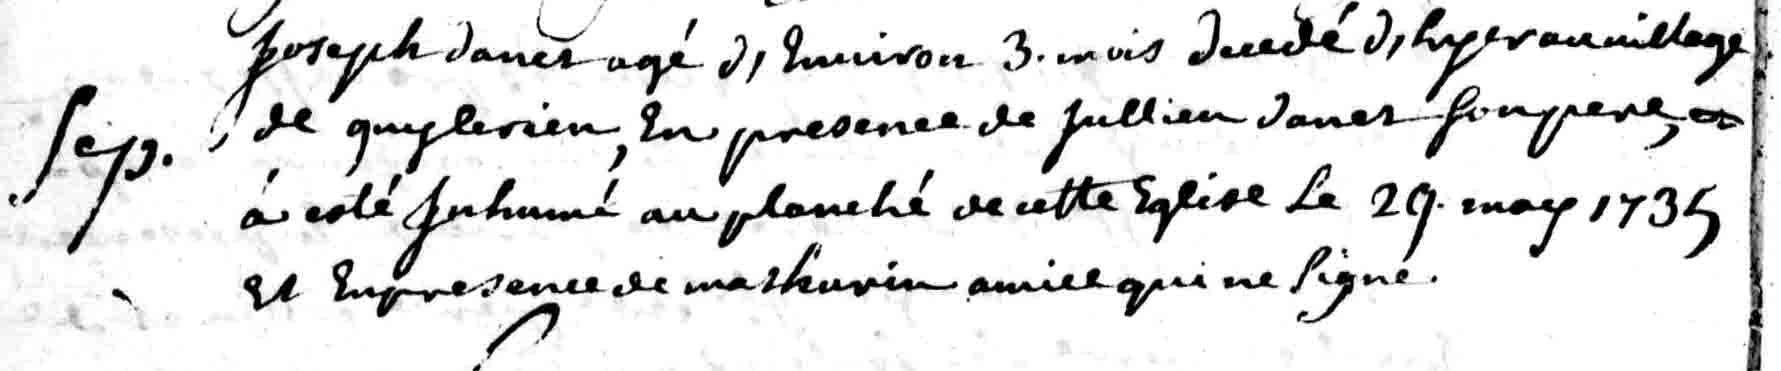 Joseph danet agé d'Environ 3. mois decedé d'hyer au village
Sep. de quylerien, En presence de Jullien danet son pere, et
á esté Inhumé au planché de cette Eglise Le 29. may 1735
Et En presence de mathurin amice qui ne signe.